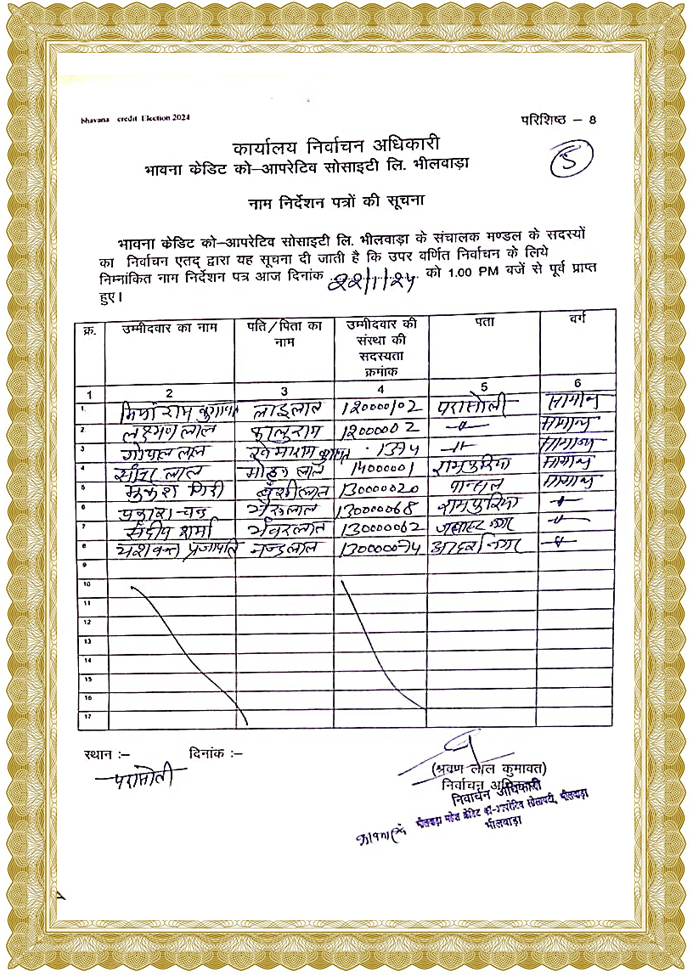 Bhavana credit Election 2024
परिशिष्ठ – 8
5
कार्यालय निर्वाचन अधिकारी
भावना केडिट को–आपरेटिव सोसाइटी लि. भीलवाड़ा
नाम निर्देशन पत्रों की सूचना
भावना केडिट को–आपरेटिव सोसाइटी लि. भीलवाड़ा के संचालक मण्डल के सदस्यों
का निर्वाचन एतद् द्वारा यह सूचना दी जाती है कि उपर वर्णित निर्वाचन के लिये
निम्नांकित नाम निर्देशन पत्र आज दिनांक 22/1/24 को 1.00 PM बजें से पूर्व प्राप्त
हुए।
क्र. उम्मीदवार का नाम पति/पिता का नाम उम्मीदवार की संस्था की सदस्यता क्रमांक पता वर्ग
1 2 3 4 5 6
1. राम लाडुलाल 120000102 परासोली सामान्य
2 लक्ष्मण लाल कालुराम 12000002 –"– सामान्य
3 गोपाल लाल 1374 –"– सामान्य
4 लाल मोहन लाल 1400001 रामपुरिया सामान्य
5 मुकेश गिरी बंशीलाल 130000020 पान्सल सामान्य
6 प्रकाश चन्द्र 130000068 रामपुरिया –"–
7 संदीप शर्मा भंवरलाल 130000062 जवाहर नगर –"–
8 यशवन्त प्रजापति नन्दलाल 130000074 आदर्श नगर –"–
9
10
11
12
13
14
15
16
17
स्थान :– दिनांक :–
परासोली
(श्रवण लाल कुमावत)
निर्वाचन अधिकारी
निर्वाचन अधिकारी
भीलवाड़ा महिला क्रेडिट को-आपरेटिव सोसायटी, भीलवाड़ा
भीलवाड़ा